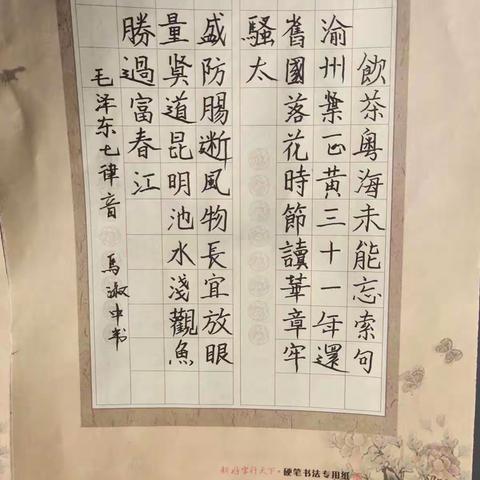 飲茶粵海未能忘索句
渝州葉正黃三十一年還
舊國落花時節讀華章牢
騷太
盛防腸断風物長宜放眼
量莫道昆明池水淺觀魚
勝過富春江
毛泽东七律音 馬淑中书
好字行天下·硬笔书法专用纸